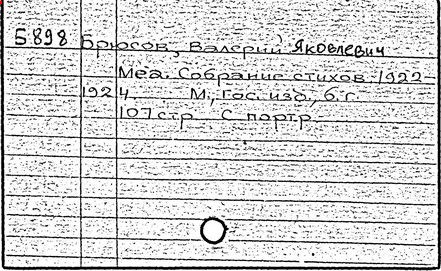 Б898 Брюсов, Валерий Яковлевич
Меа. Собрание стихов 1922-
1924 М., Гос. изд., б.г.
107 стр. с портр.